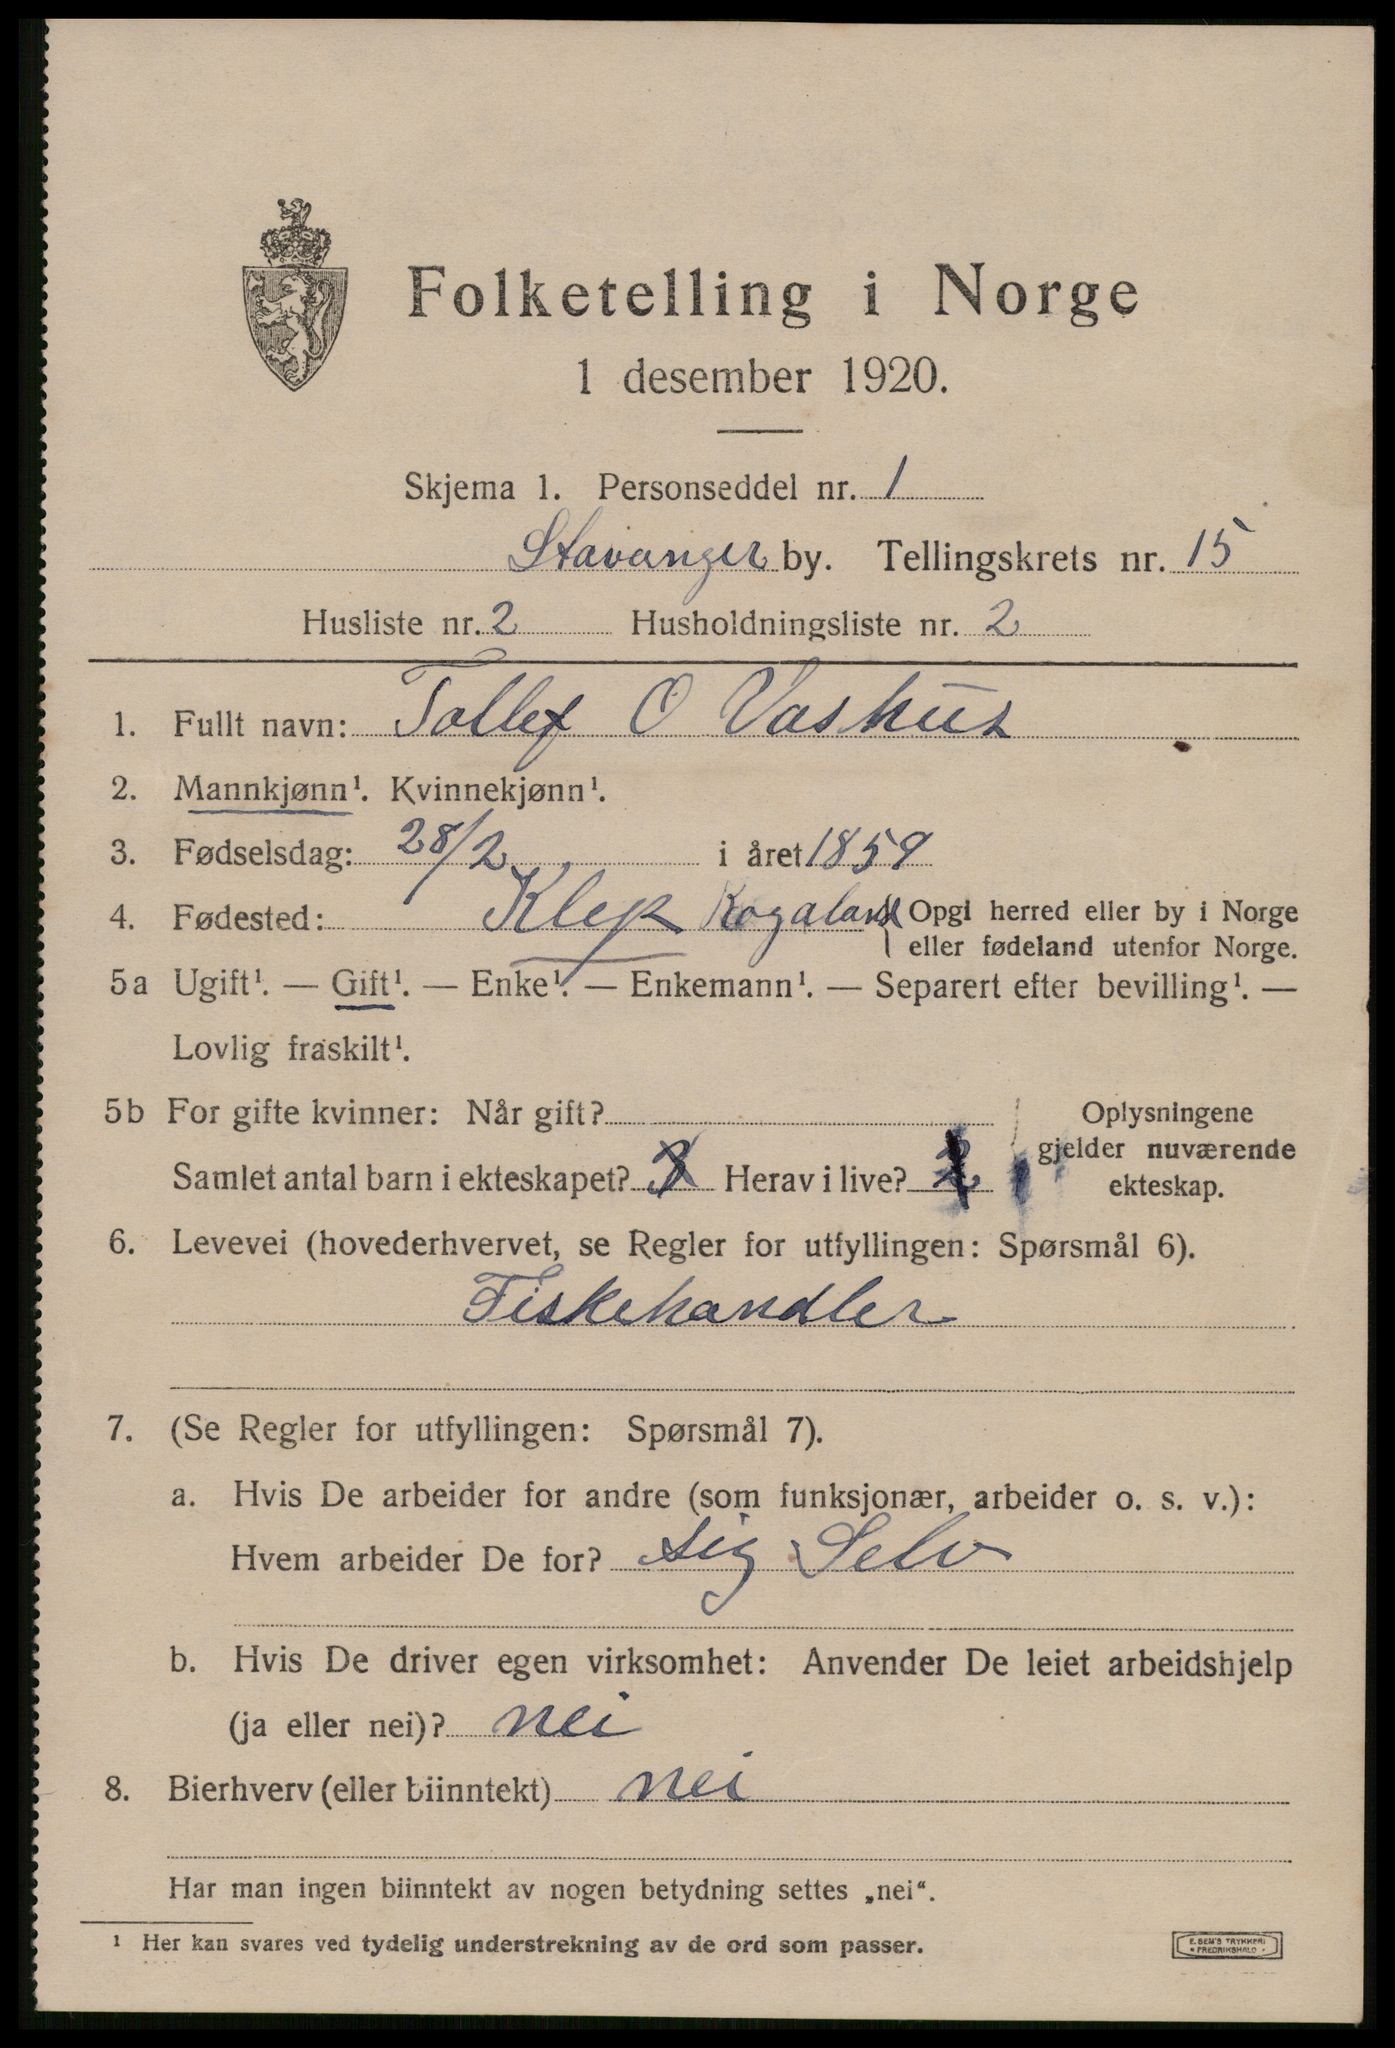 Folketelling i Norge
1 desember 1920.
Skjema 1. Personseddel nr. 1
Stavanger by. Tellingskrets nr. 15
Husliste nr. 2 Husholdningsliste nr. 2
1. Fullt navn: Tollef O Vashus
2. Mannkjønn¹. Kvinnekjønn¹.
3. Fødselsdag: 28/2 i året 1859
4. Fødested: Klep Rogaland { Opgi herred eller by i Norge
eller fødeland utenfor Norge.
5a Ugift¹. — Gift¹. — Enke¹. — Enkemann¹. — Separert efter bevilling¹. —
Lovlig fraskilt¹.
5b For gifte kvinner: Når gift? Oplysningene
gjelder nuværende
Samlet antal barn i ekteskapet? 3 Herav i live? ekteskap.
6. Levevei (hovederhvervet, se Regler for utfyllingen: Spørsmål 6).
Fiskehandler
7. (Se Regler for utfyllingen: Spørsmål 7).
a. Hvis De arbeider for andre (som funksjonær, arbeider o. s. v.):
Hvem arbeider De for? sig Selv
b. Hvis De driver egen virksomhet: Anvender De leiet arbeidshjelp
(ja eller nei)? nei
8. Bierhverv (eller biinntekt) nei
Har man ingen biinntekt av nogen betydning settes „nei“.
¹ Her kan svares ved tydelig understrekning av de ord som passer.
E. SEM'S TRYKKERI
FREDRIKSHALD